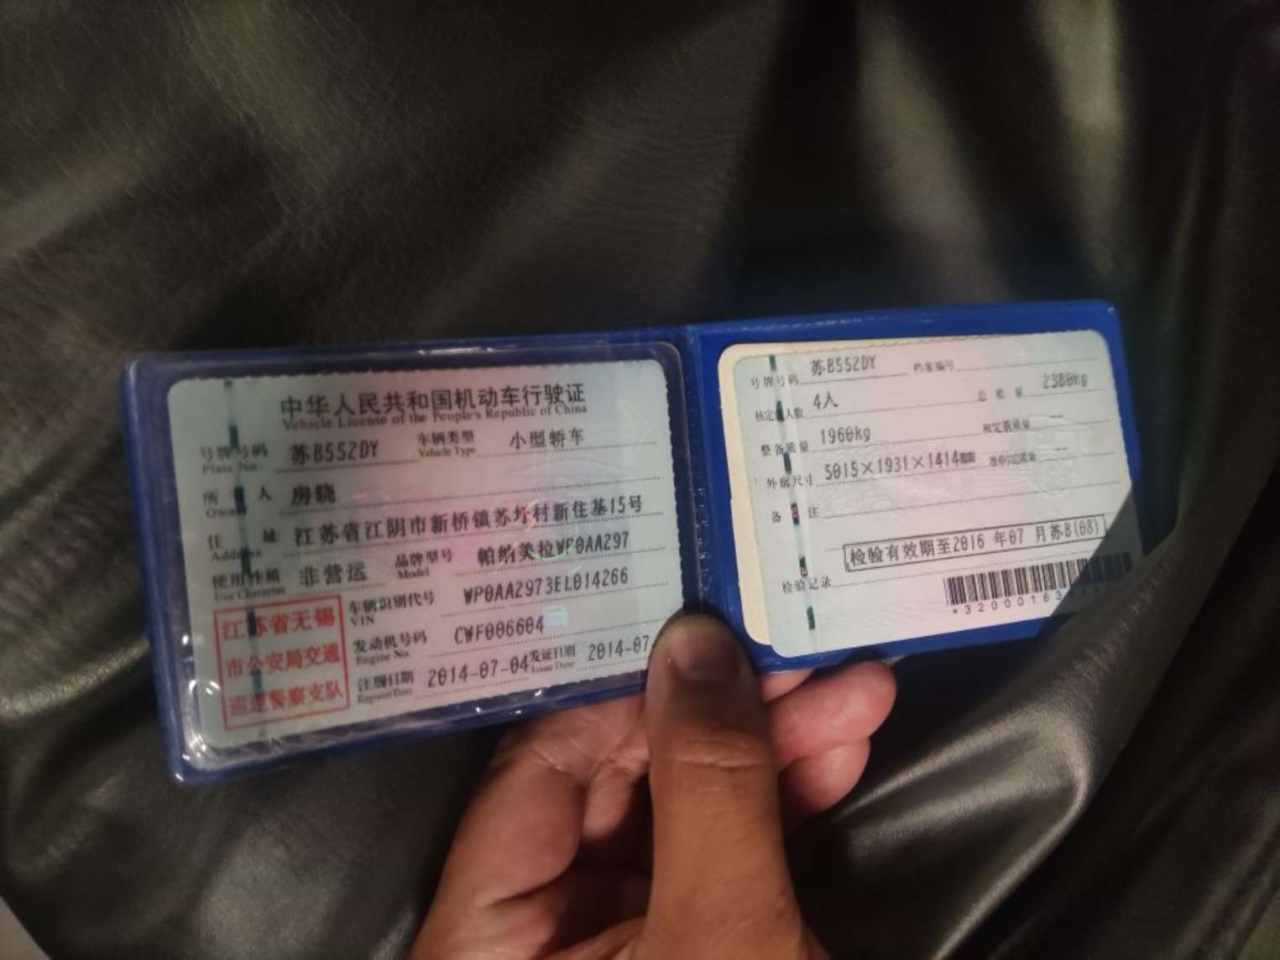 中华人民共和国机动车行驶证
Vehicle License of the People's Republic of China
号牌号码 苏B552DY 车辆类型 小型轿车
Plate No. Vehicle Type
所有人 房晓
Owner
住址 江苏省江阴市新桥镇苏圩村新住基15号
Address
使用性质 非营运 品牌型号 帕纳美拉WP0AA297
Use Character Model
车辆识别代号 WP0AA2973EL014266
VIN
发动机号码 CWF006604
Engine No.
注册日期 2014-07-04 发证日期 2014-07
Register Date Issue Date
江苏省无锡
市公安局交通
巡逻警察支队
号牌号码 苏B552DY 档案编号
核定载人数 4人 总质量 2380kg
整备质量 1960kg 核定载质量 —
外廓尺寸 5015×1931×1414mm 准牵引总质量 —
备注
检验有效期至2016 年07 月苏B(08)
检验记录
*32000163